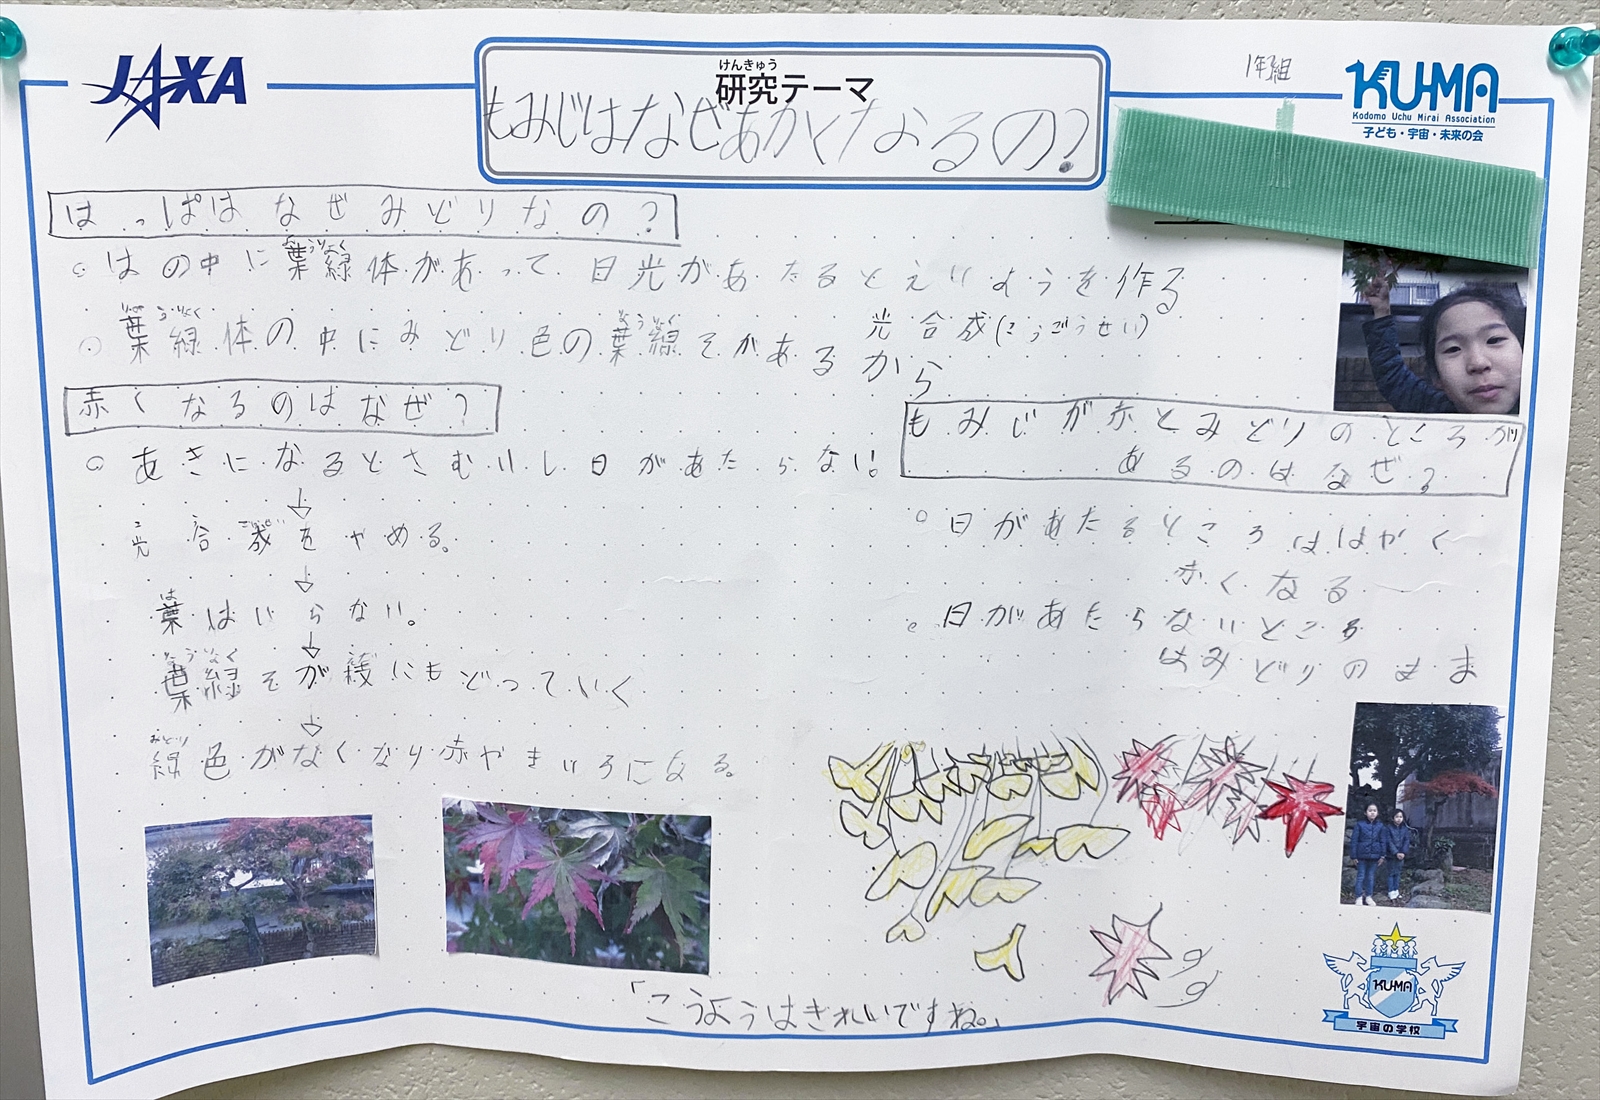 JAXA
けんきゅう
研究テーマ
もみじはなぜあかくなるの?
1年3組
KU-MA
Kodomo Uchu Mirai Association
子ども・宇宙・未来の会
はっぱはなぜみどりなの?
はの中に葉緑体があって日光があたるとえいようを作る
光合成(こうごうせい)
葉緑体の中にみどり色の葉緑そがあるから
赤くなるのはなぜ?
あきになるとさむいし日があたらない。
↓
光合成をやめる。
↓
は
葉はいらない。
↓
葉緑そが緑にもどっていく
↓
みどり
緑色がなくなり赤やきいろになる。
もみじが赤とみどりのところが
あるのはなぜ?
日があたるところははやく
赤くなる
日があたらないところ
はみどりのまま
「こうようはきれいですね。」
KU-MA
宇宙の学校